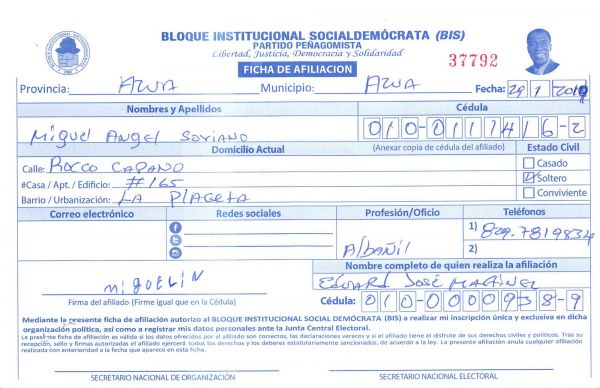 BLOQUE INSTITUCIONAL SOCIALDEMÓCRATA (BIS)
PARTIDO PEÑAGOMISTA
Libertad, Justicia, Democracia y Solidaridad
37792
FICHA DE AFILIACION
Provincia: AZUA Municipio: AZUA Fecha: 29 1 2019
Nombres y Apellidos Cédula
Miguel Angel Soriano 010-0111416-2
Domicilio Actual (Anexar copia de cédula del afiliado) Estado Civil
Calle: ROCCO CAPANO Casado
#Casa / Apt. / Edificio: #165 Soltero
Barrio / Urbanización: LA PLACETA Conviviente
Correo electrónico Redes sociales Profesión/Oficio Teléfonos
Albañil 1) 829-7819834
2)
Nombre completo de quien realiza la afiliación
MIGUELIN EDUARD JOSÉ MARTINEZ
Firma del afiliado (Firme igual que en la Cédula) Cédula: 010-0000938-9
Mediante la presente ficha de afiliación autorizo al BLOQUE INSTITUCIONAL SOCIAL DEMÓCRATA (BIS) a realizar mi inscripción única y exclusiva en dicha
organización política, así como a registrar mis datos personales ante la Junta Central Electoral.
La presente ficha de afiliación es válida si los datos ofrecidos por el afiliado son correctos, las declaraciones veraces y si el afiliado tiene el disfrute de sus derechos civiles y políticos. Tras su
recepción, sello y firmas autorizadas el afiliado ejercerá todos los derechos y los deberes estatutariamente sancionados, de acuerdo a la ley. La presente afiliación anula cualquier afiliación
realizada con anterioridad a la fecha que aparece en esta ficha.
SECRETARIO NACIONAL DE ORGANIZACIÓN SECRETARIO NACIONAL ELECTORAL